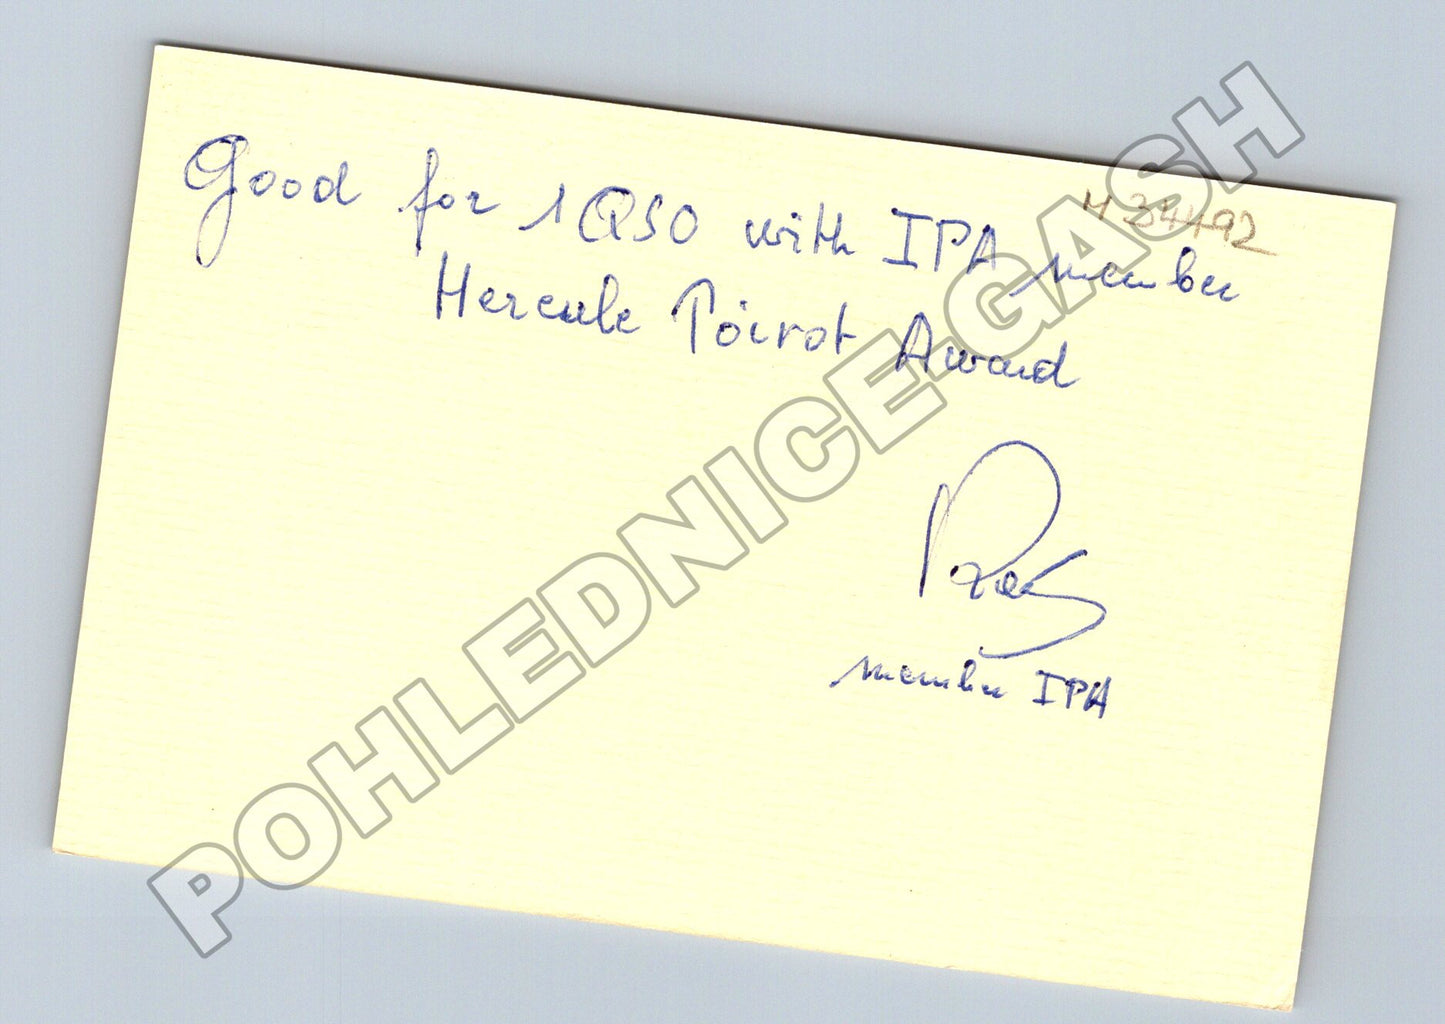 H 34492
Good for 1 QSO with IPA member
Hercule Poirot Award
member IPA
POHLEDNICE-GASH